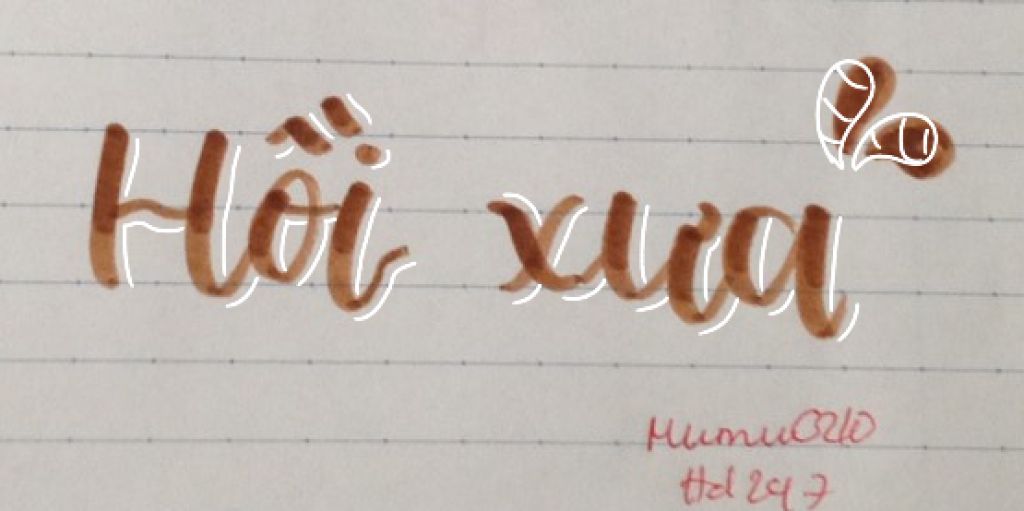 Hồi xưa
Mumu0210
Hd247